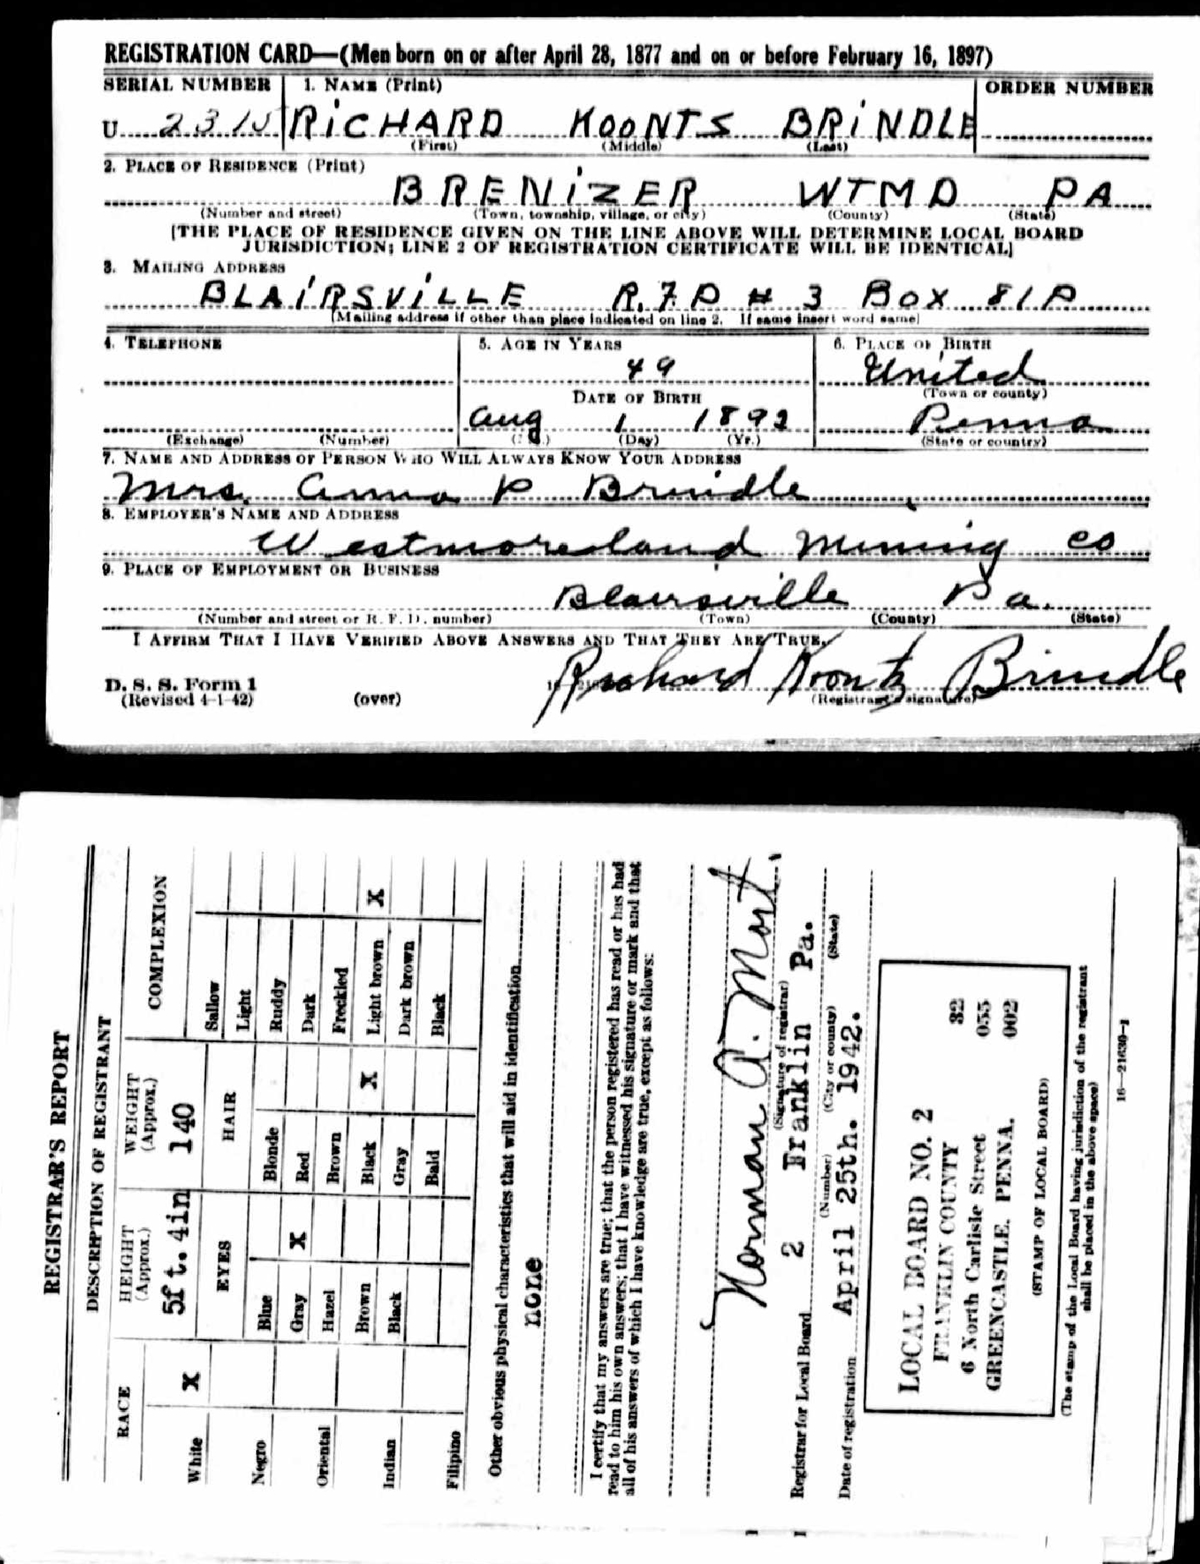 REGISTRATION CARD—(Men born on or after April 28, 1877 and on or before February 16, 1897)
SERIAL NUMBER 1. NAME (Print) ORDER NUMBER
U 2315 RICHARD KOONTS BRINDLE
(First) (Middle) (Last)
2. PLACE OF RESIDENCE (Print)
BRENIZER WTMD PA
(Number and street) (Town, township, village, or city) (County) (State)
[THE PLACE OF RESIDENCE GIVEN ON THE LINE ABOVE WILL DETERMINE LOCAL BOARD
JURISDICTION; LINE 2 OF REGISTRATION CERTIFICATE WILL BE IDENTICAL]
3. MAILING ADDRESS
BLAIRSVILLE R.F.D # 3 BOX 81P
[Mailing address if other than place indicated on line 2. If same insert word same]
4. TELEPHONE 5. AGE IN YEARS 6. PLACE OF BIRTH
49 United
DATE OF BIRTH (Town or county)
Aug 1 1892 Penna
(Exchange) (Number) (Day) (Yr.) (State or country)
7. NAME AND ADDRESS OF PERSON WHO WILL ALWAYS KNOW YOUR ADDRESS
Mrs. Anna P Brindle
8. EMPLOYER'S NAME AND ADDRESS
Westmoreland Mining Co
9. PLACE OF EMPLOYMENT OR BUSINESS
Blairsville Pa.
(Number and street or R. F. D. number) (Town) (County) (State)
I AFFIRM THAT I HAVE VERIFIED ABOVE ANSWERS AND THAT THEY ARE TRUE.
Richard Koontz Brindle
D. S. S. Form 1
(Revised 4-1-42) (over) (Registrant's signature)
REGISTRAR'S REPORT
DESCRIPTION OF REGISTRANT
RACE HEIGHT (Approx.) WEIGHT (Approx.) COMPLEXION
5ft. 4in 140
White X EYES HAIR Sallow
Light
Negro Blue Blonde Ruddy
Gray X Red Dark
Oriental Hazel Brown Freckled
Indian Brown Black X Light brown X
Black Gray Dark brown
Filipino Bald Black
Other obvious physical characteristics that will aid in identification
none
I certify that my answers are true; that the person registered has read or has had
read to him his own answers; that I have witnessed his signature or mark and that
all of his answers of which I have knowledge are true, except as follows:
Norman A. Mort.
(Signature of registrar)
Registrar for Local Board 2 Franklin Pa.
(Number) (City or county) (State)
Date of registration April 25th. 1942.
LOCAL BOARD NO. 2 32
FRANKLIN COUNTY 055
6 North Carlisle Street 002
GREENCASTLE, PENNA.
(STAMP OF LOCAL BOARD)
(The stamp of the Local Board having jurisdiction of the registrant
shall be placed in the above space)
16—21630-1